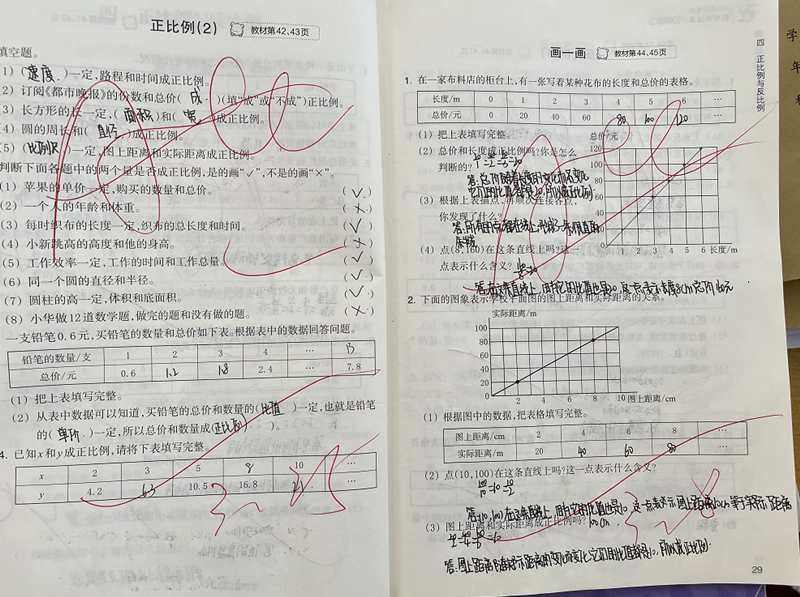 正比例(2) 教材第42、43页
填空题。
1)(速度)一定,路程和时间成正比例。
2)订阅《都市晚报》的份数和总价(成)(填“成”或“不成”)正比例。
3)长方形的长一定,(面积)和(宽)成正比例。
4)圆的周长和(直径)成正比例。
5)(比例尺)一定,图上距离和实际距离成正比例。
判断下面各题中的两个量是否成正比例,是的画“✓”,不是的画“×”。
(1)苹果的单价一定,购买的数量和总价。(✓)
(2)一个人的年龄和体重。(×)
(3)每时织布的长度一定,织布的总长度和时间。(✓)
(4)小新跳高的高度和他的身高。(×)
(5)工作效率一定,工作的时间和工作总量。(✓)
(6)同一个圆的直径和半径。(✓)
(7)圆柱的高一定,体积和底面积。(✓)
(8)小华做12道数学题,做完的题和没有做的题。(×)
一支铅笔0.6元,买铅笔的数量和总价如下表。根据表中的数据回答问题。
铅笔的数量/支 1 2 3 4 … 13
总价/元 0.6 1.2 1.8 2.4 … 7.8
(1)把上表填写完整。
(2)从表中数据可以知道,买铅笔的总价和数量的(比值)一定,也就是铅笔
的(单价)一定,所以总价和数量成(正比例)。
4. 已知x和y成正比例,请将下表填写完整。
x 2 3 5 8 10 …
y 4.2 6.3 10.5 16.8 21 …
画一画 教材第44、45页
1. 在一家布料店的柜台上,有一张写着某种花布的长度和总价的表格。
长度/m 0 1 2 3 4 5 6 …
总价/元 0 20 40 60 80 100 120 …
(1)把上表填写完整。
(2)总价和长度成正比例吗?你是怎么
判断的?
(3)根据上表描点,再顺次连接各点,
你发现了什么?
(4)点(8,160)在这条直线上吗?这一
点表示什么含义?
总价/元
120
100
80
60
40
20
0 1 2 3 4 5 6 长度/m
2. 下面的图象表示学校平面图的图上距离和实际距离的关系。
实际距离/m
100
80
60
40
20
0 2 4 6 8 10 图上距离/cm
(1)根据图中的数据,把表格填写完整。
图上距离/cm 2 4 6 8 …
实际距离/m 20 40 60 80 …
(2)点(10,100)在这条直线上吗?这一点表示什么含义?
(3)图上距离和实际距离成正比例吗?
四 正比例与反比例
29